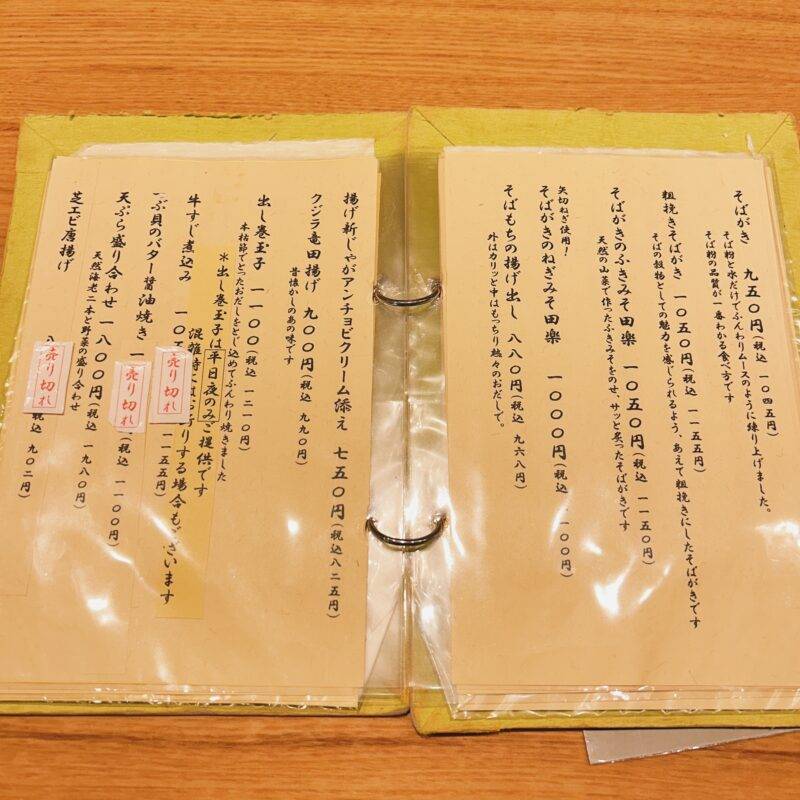 そばがき 九五〇円(税込 一〇四五円)
そば粉と水だけでふんわりムースのように練り上げました。
そば粉の品質が一番わかる食べ方です
粗挽きそばがき 一〇五〇円(税込 一一五五円)
そばの穀物としての魅力を感じられるよう、あえて粗挽きにしたそばがきです
そばがきのふきみそ田楽 一〇五〇円(税込 一一五〇円)
天然の山菜で作ったふきみそをのせ、サッと炙ったそばがきです
矢切ねぎ使用!
そばがきのねぎみそ田楽 一〇〇〇円(税込 一一〇〇円)
そばもちの揚げ出し 八八〇円(税込 九六八円)
外はカリッと中はもっちり熱々のおだしで。
揚げ新じゃがアンチョビクリーム添え 七五〇円(税込八二五円)
クジラ竜田揚げ 九〇〇円(税込 九九〇円)
昔懐かしのあの味です
出し巻玉子 一一〇〇(税込 一二一〇円)
本枯節でとったおだしをとじ込めてふんわり焼きました
※出し巻玉子は平日夜のみご提供です
混雑時にはお断りする場合もございます
牛すじ煮込み 一〇五 一一五五円)
売り切れ
ぶ貝のバター醤油焼き 一 税込 一一〇〇円)
売り切れ
天ぷら盛り合わせ 一八〇〇円(税込 一九八〇円)
天然海老二本と野菜の盛り合わせ
芝エビ唐揚げ 八 税込 九〇二円)
売り切れ